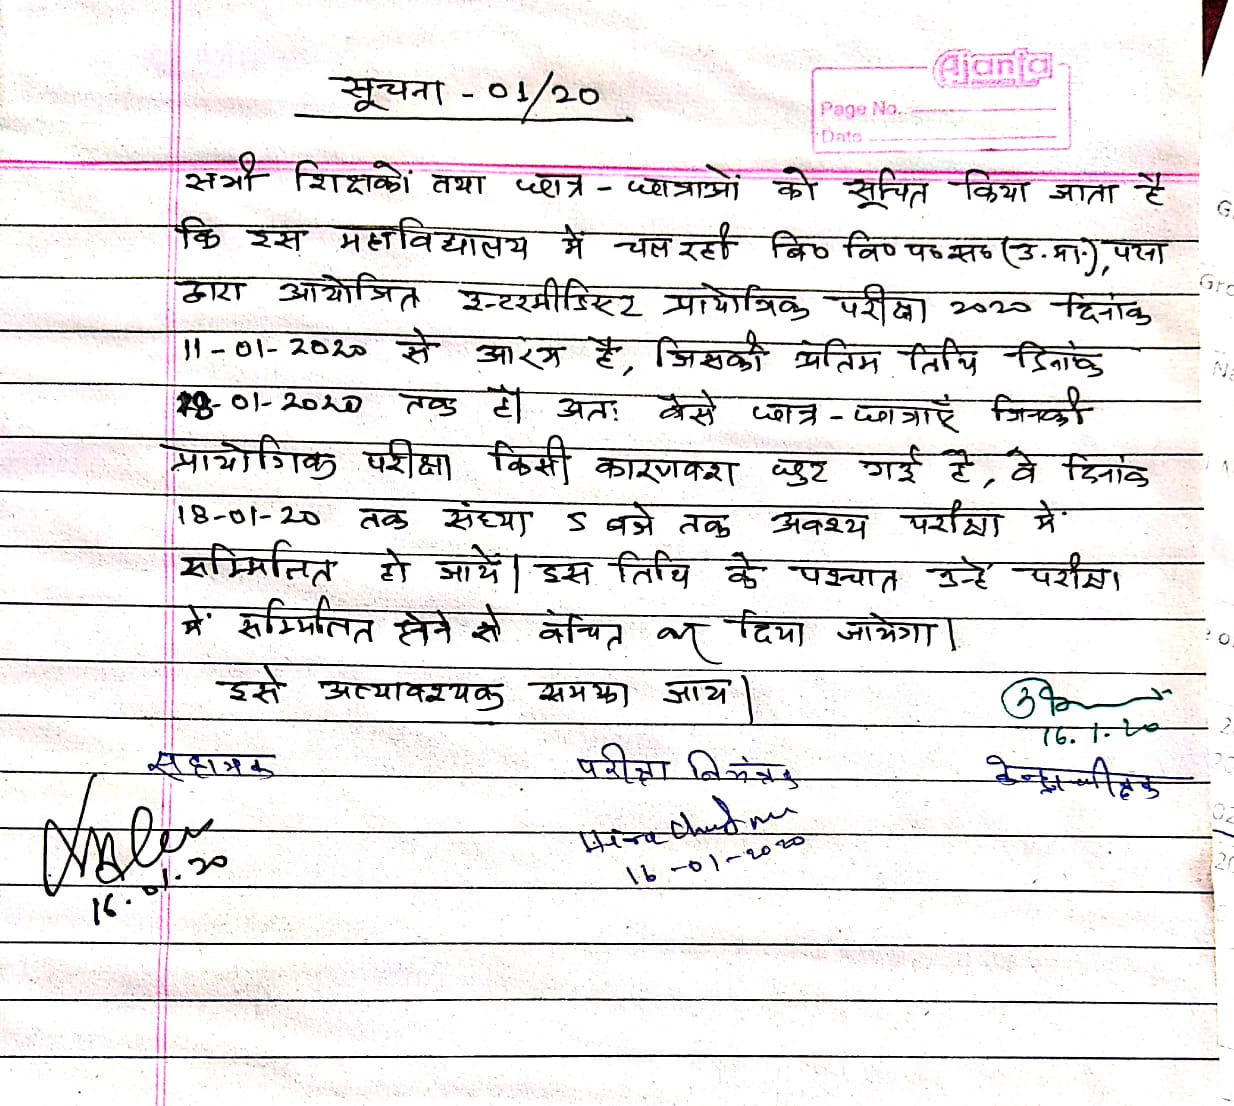 सूचना - 01/20
Ajanta
Page No.
Date
सभी शिक्षकों तथा छात्र - छात्राओं को सूचित किया जाता है
कि इस महाविद्यालय में चल रही बि० वि० प० स० (उ. मा.), पटना
द्वारा आयोजित इन्टरमीडिएट प्रायोगिक परीक्षा 2020 दिनांक
11-01-2020 से आरंभ है, जिसकी अंतिम तिथि दिनांक
18-01-2020 तक है। अतः वैसे छात्र - छात्राएँ जिनकी
प्रायोगिक परीक्षा किसी कारणवश छुट गई है, वे दिनांक
18-01-20 तक संध्या 5 बजे तक अवश्य परीक्षा में
सम्मिलित हो जायें। इस तिथि के पश्चात उन्हें परीक्षा
में सम्मिलित होने से वंचित कर दिया जायेगा।
इसे अत्यावश्यक समझा जाय।
16.1.20
सहायक परीक्षा नियंत्रक केन्द्राधीक्षक
16-01-2020
16.01.20